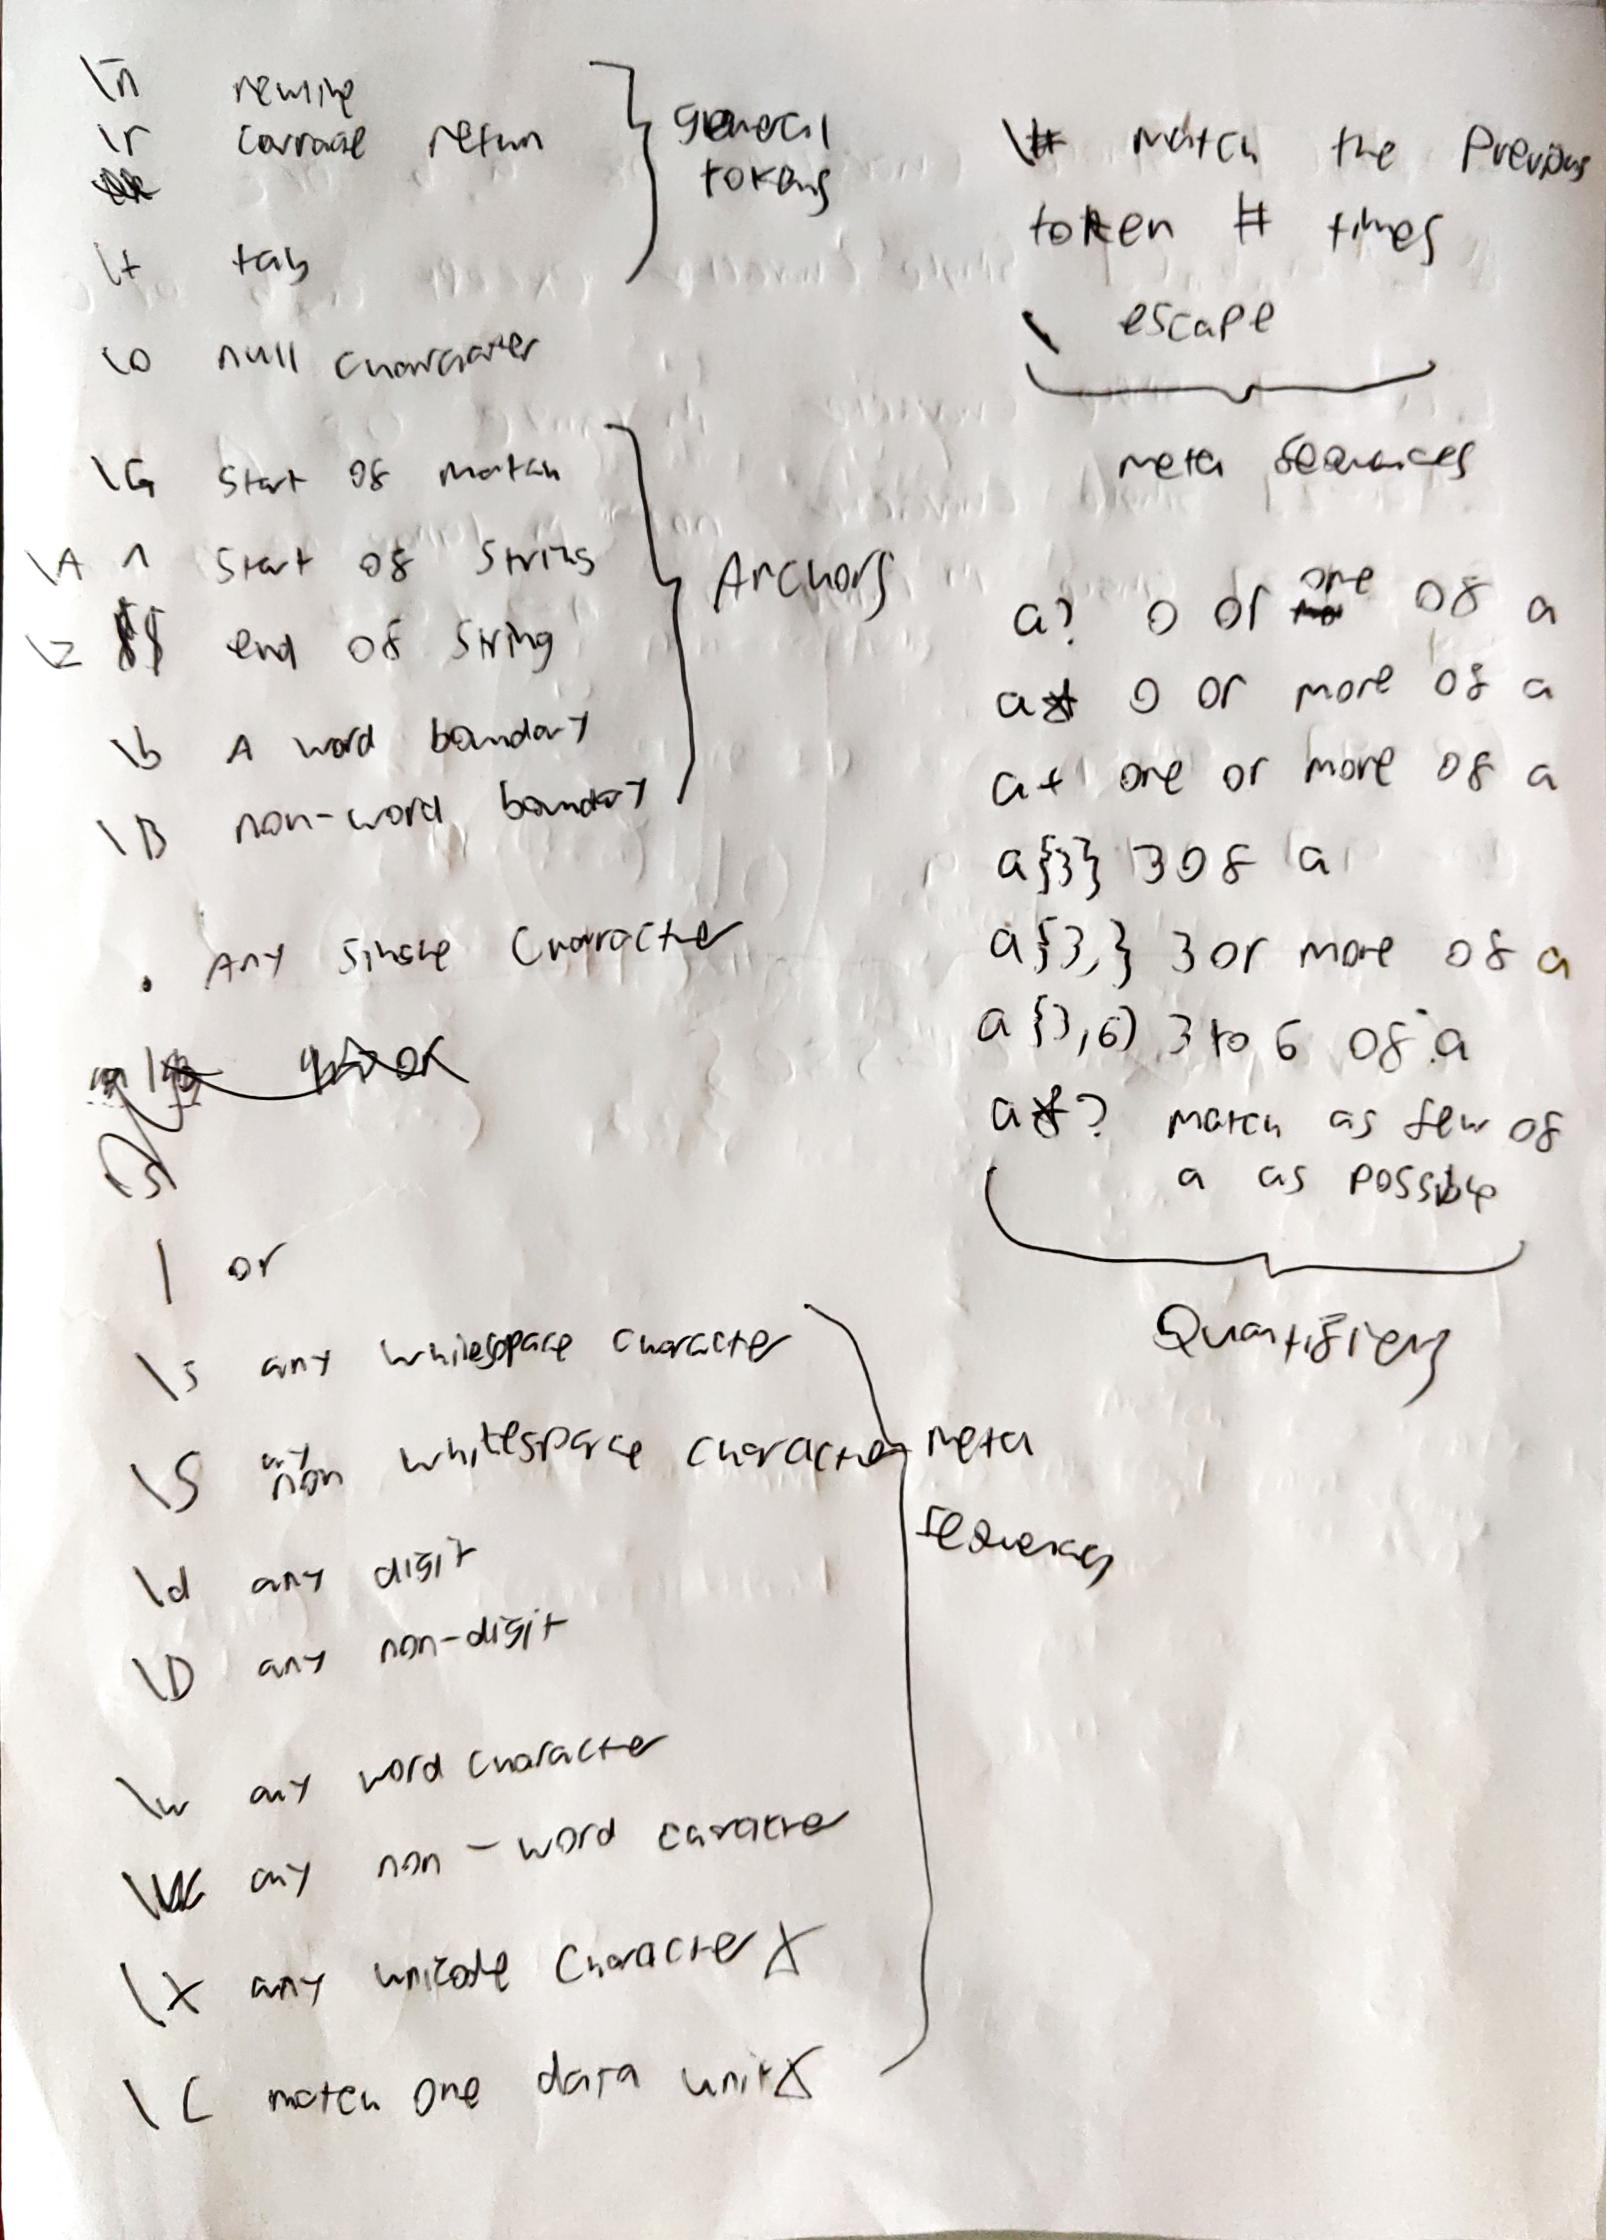 \n newline
\r carraage return
\t tab
general
tokens
\0 null character
\G start of match
\A ^ start of string
\z $ end of string
\b A word boundary
\B non-word boundary
Anchors
. Any single character
| or
\s any whitespace character
\S any non whitespace character
\d any digit
\D any non-digit
\w any word character
\W any non-word caracter
\X any unicode character X
\C match one data unit X
meta
sequences
\# match the previous
token # times
\ escape
meta sequences
a? 0 or one of a
a* 0 or more of a
a+ one or more of a
a{3} 3 of a
a{3,} 3 or more of a
a{3,6} 3 to 6 of a
a*? match as few of
a as possible
Quantifiers